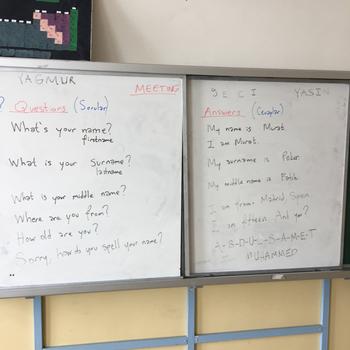 YAGMUR
MEETING
? Questions (Sorular)
What's your name?
firstname
What is your surname?
lastname
What is your middle name?
Where are you from?
How old are you?
Sorry, how do you spell your name?
GECI YASIN
Answers (Cevaplar)
My name is Murat.
I am Murat.
My surname is Polat.
My middle name is Fatih.
I am from Madrid, Spain.
I am fifteen. And you?
A-B-D-U-L-S-A-M-E-T
MUHAMMED